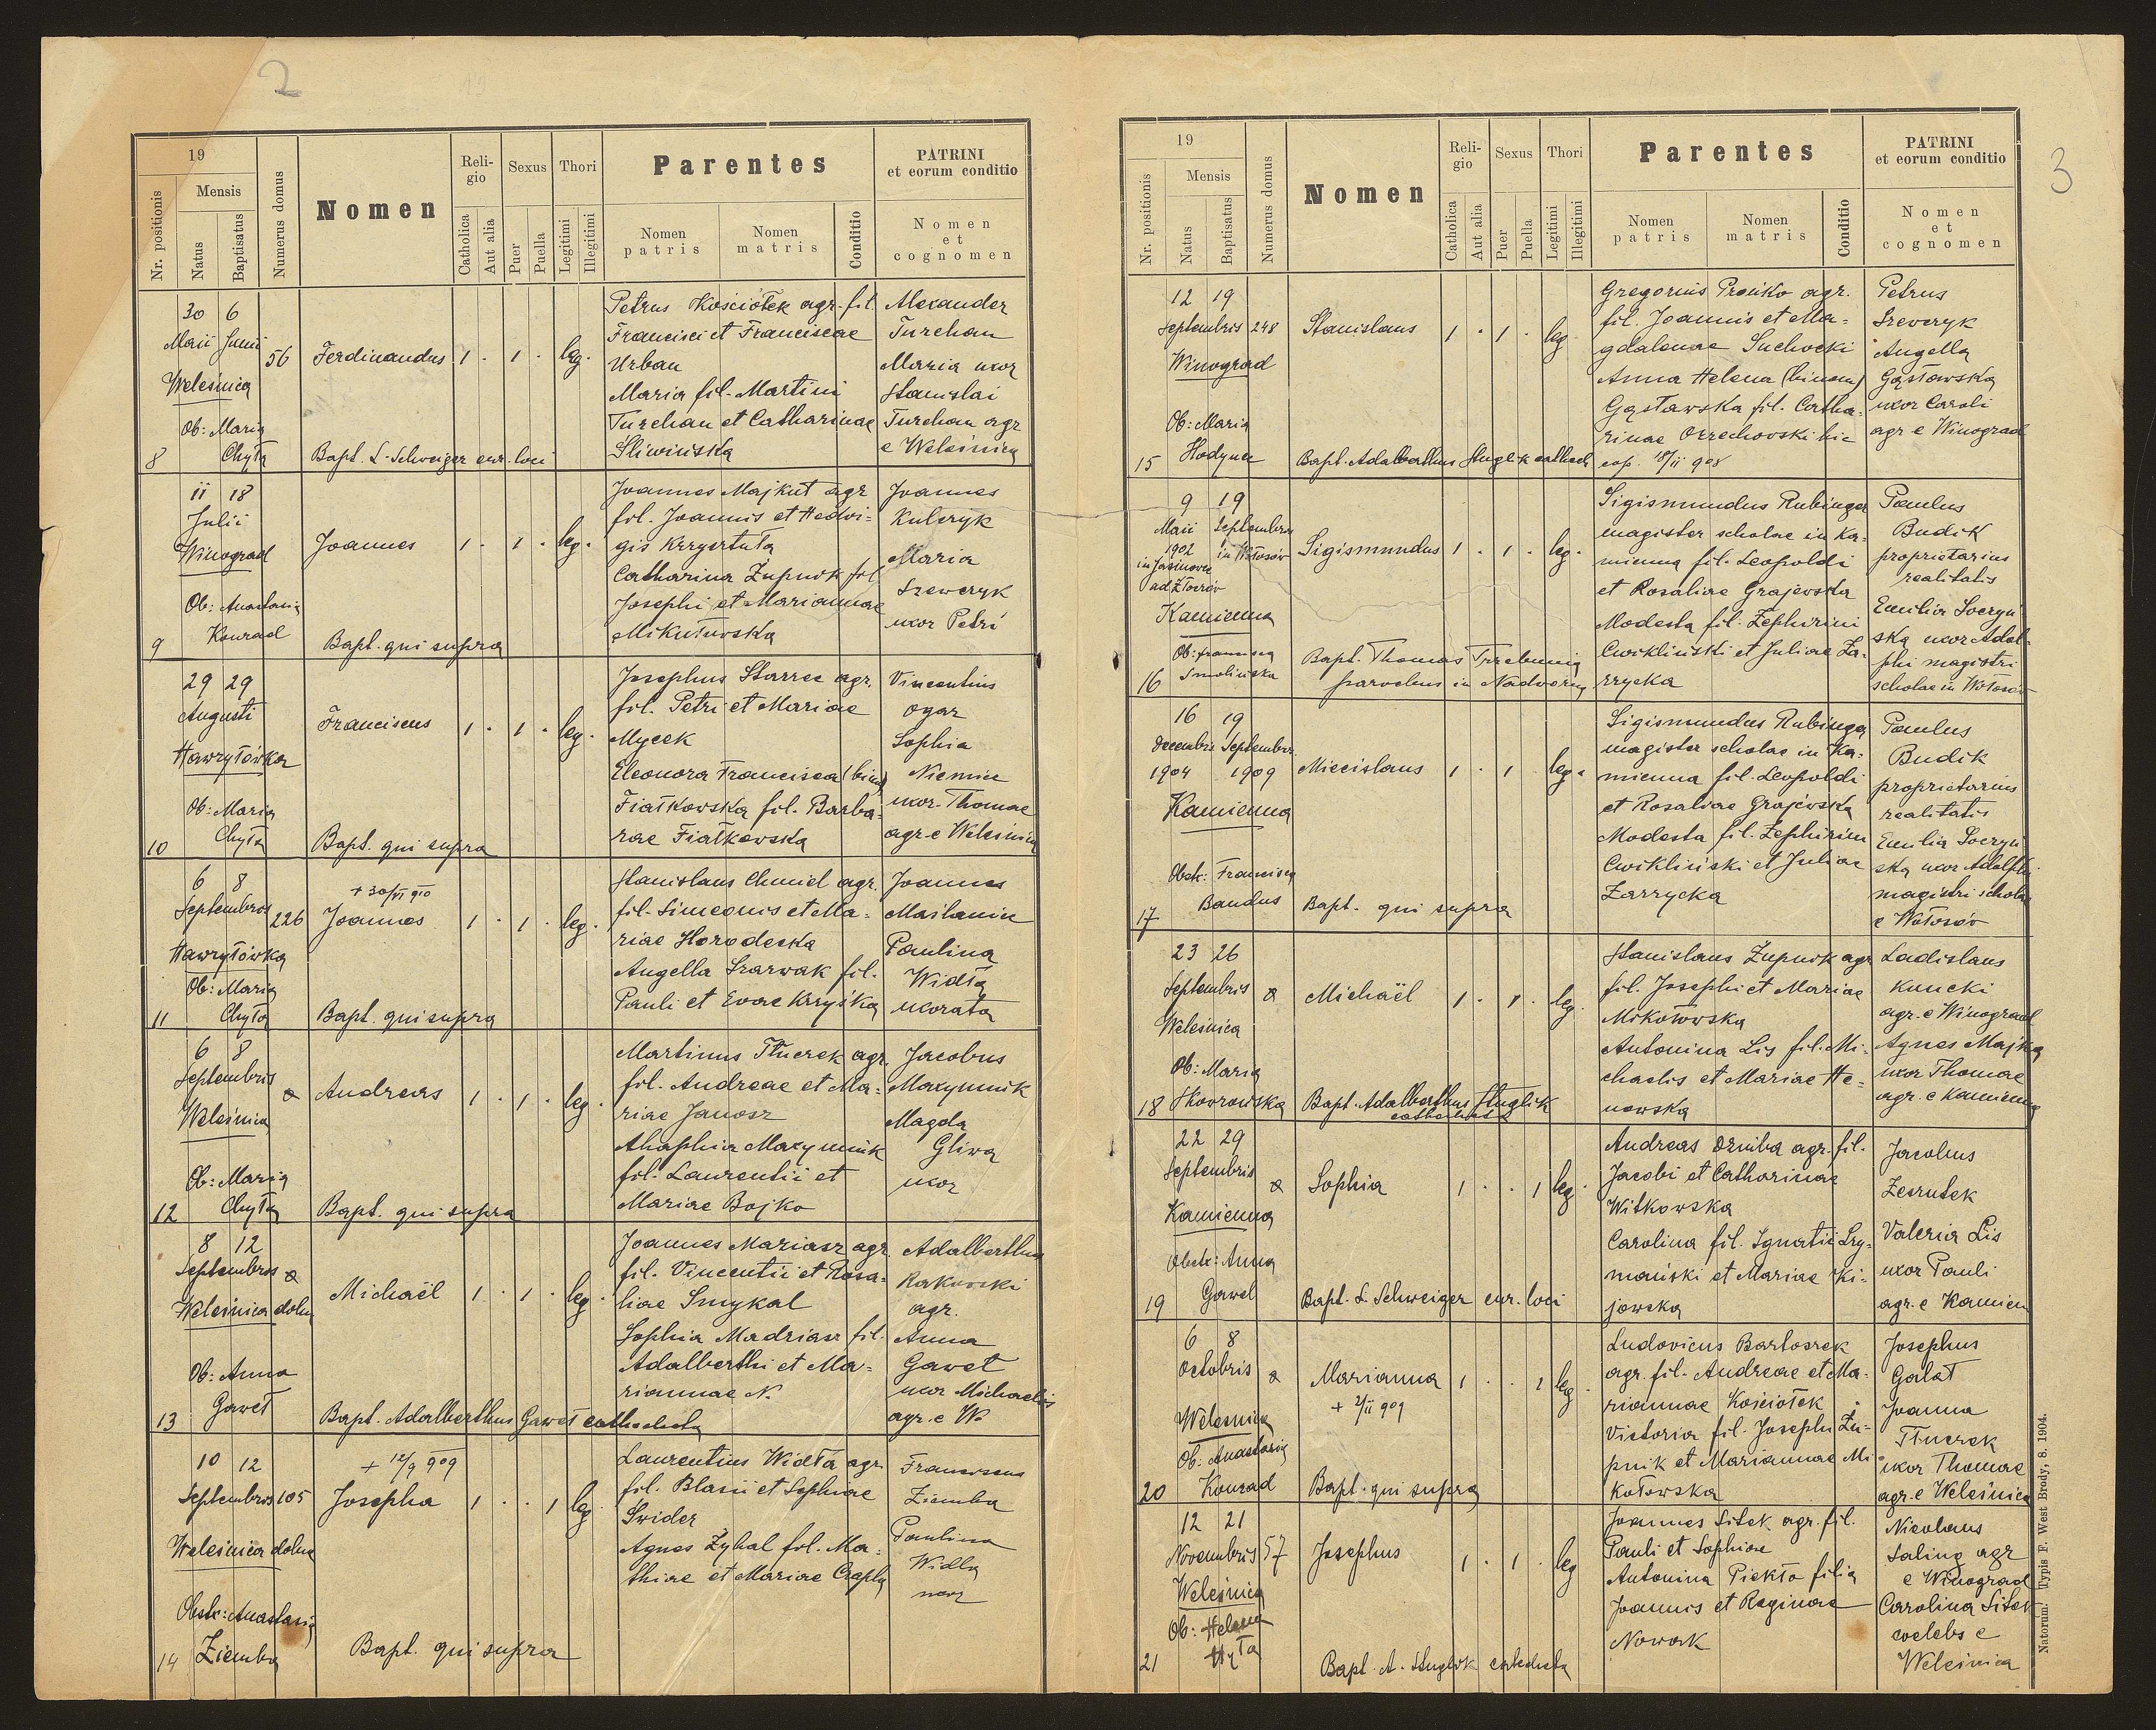 2
19
Mensis
Nr. positionis
Natus
Baptisatus
Numerus domus
Nomen
Reli-
gio
Catholica
Aut alia
Sexus
Puer
Puella
Thori
Legitimi
Illegitimi
Parentes
Nomen
patris
Nomen
matris
Conditio
PATRINI
et eorum conditio
Nomen
et
cognomen
30 6
Maii Junii
56 Ferdinandus 1 . 1 . leg.
Welesnica
Ob: Maria
8 Chyła Bapt. L. Schweiger cur. loci
Petrus Kościołek agr. fil.
Francisci et Franciscae
Urban
Maria fil. Martini
Turchan et Catharinae
Śliwińska
Alexander
Turchan
Maria uxor
Stanislai
Turchan agr
e Welesnica
11 18
Julii
Winograd
Joannes 1 . 1 . leg.
Ob: Anastasia
9 Konrad Bapt. qui supra
Joannes Majkut agr
fil. Joannis et Hedwi=
gis Krzysztuła
Catharina Żupnik fil
Josephi et Mariannae
Mikułowska
Joannes
Kulczyk
Maria
Szewczyk
uxor Petri
29 29
Augusti
Hawryłówka
Franciscus 1 . 1 . leg.
Ob: Maria
10 Chyła Bapt. qui supra
Josephus Starzec agr.
fil. Petri et Mariae
Mycek
Eleonora Francisca (bin)
Fiałkowska fil. Barba=
rae Fiałkowska
Vincentius
Ogar
Sophia
Niemiec
uxor Thomae
agr. e Welesnica
6 8
Septembris 226
+ 30/VI 910
Joannes 1 . 1 . leg.
Hawryłówka
Ob: Maria
11 Chyła Bapt. qui supra
Stanislaus Chmiel agr.
fil. Simeonis et Ma=
riae Horodecka
Angella Szarwak fil.
Pauli et Evae Krzyśka
Joannes
Maślanin
Paulina
Widła
uxorata
6 8
Septembris
Welesnica
Andreas 1 . 1 . leg.
Ob: Maria
12 Chyła Bapt. qui supra
Martinus Tłuczek agr.
fil. Andreae et Ma=
riae Janosz
Ahaphia Maxymnik
fil. Laurentii et
Mariae Bojko
Jacobus
Maxymnik
Magda
Gliwa
uxor
8 12
Septembris
Welesnica dolna
Michaël 1 . 1 . leg.
Ob: Anna
Gaweł
13 Bapt. Adalberthus Gaweł cathecheta
Joannes Mariasz agr
fil. Vincentii et Rosa=
liae Smykal
Sophia Madriasz fil.
Adalberthi et Ma=
riannae N.
Adalberthus
Rakowski
agr.
Anna
Gaweł
uxor Michaelis
agr. e W.
10 12
+ 12/9 909
Septembris 105 Josepha 1 . . 1 leg
Welesnica dolna
Obstr: Anastasia
14 Ziemba Bapt. qui supra
Laurentius Widła agr.
fil. Blasii et Sophiae
Swider
Agnes Zybal fil. Ma=
thiae et Mariae Czepla
Franciscus
Ziemba
Paulina
Widła
uxor
3
19
Mensis
Nr. positionis
Natus
Baptisatus
Numerus domus
Nomen
Reli-
gio
Catholica
Aut alia
Sexus
Puer
Puella
Thori
Legitimi
Illegitimi
Parentes
Nomen
patris
Nomen
matris
Conditio
PATRINI
et eorum conditio
Nomen
et
cognomen
12 19
Septembris 248 Stanislaus 1 . 1 . leg
Winograd
Ob: Maria
15 Hodyna Bapt. Adalberthus Stuglik cathech
Gregorius Pronko agr.
fil. Joannis et Ma=
gdalenae Suchocki
Anna Helena (binom)
Gąstawska fil. Catha=
rinae Orzechowski hic
cop. 18/II 908
Petrus
Szewczyk
Angella
Gąstawska
uxor Caroli
agr e Winograd
9 19
Maii Septembris
1902 in Wołosów
in Jasinowce
ad Złoczów
Kamienna
Sigismundus 1 . 1 . leg.
Ob: Francisca
16 Smolińska
Bapt. Thomas Trzebunia
parochus in Nadworna
Sigismundus Rubinger
magister scholae in Ka=
mienna fil. Leopoldi
et Rosaliae Grajewska
Modesta fil. Zephirini
Cwikliński et Juliae Za=
rzycka
Paulus
Budik
proprietarius
realitatis
Emilia Soczyń
ska uxor Adol
phi magistri
scholae in Wołosów
16 19
Decembris Septembris
1904 1909 Miecislaus 1 . 1 leg.
Kamienna
Obstr: Francisca
17 Bandus Bapt. qui supra
Sigismundus Rubinger
magister scholae in Ka=
mienna fil. Leopoldi
et Rosaliae Grajewska
Modesta fil. Zephirini
Cwikliński et Juliae
Zarzycka
Paulus
Budik
proprietarius
realitatis
Emilia Soczyń
ska uxor Adolphi
magistri scholae
e Wołosów
23 26
Septembris
Welesnica
Michaël 1 . 1 . leg.
Ob: Maria
18 Skowrońska Bapt. Adalberthus Stuglik
cathecheta
Stanislaus Żupnik agr
fil. Josephi et Mariae
Mikołowska
Antonina Lis fil. Mi=
chaelis et Mariae He=
nowska
Ladislaus
Kuncki
agr. e Winograd
Agnes Majka
uxor Thomae
agr. e Kamienna
22 29
Septembris
Kamienna
Sophia 1 . . 1 leg.
Obstr: Anna
19 Gawel Bapt. L. Schweiger cur. loci
Andreas Dziuba agr. fil.
Jacobi et Catharinae
Witkowska
Carolina fil. Ignatii Szy=
mański et Mariae Ki=
jowska
Jacobus
Zesrutek
Valeria Lis
uxor Pauli
agr. e Kamien
6 8
Octobris
Welesnica
Marianna 1 . . 1 leg.
+ 2/II 909
Ob: Anastasia
20 Konrad Bapt. qui supra
Ludovicus Bartoszek
agr. fil. Andreae et Ma=
riannae Kościołek
Victoria fil. Josephi Żu=
pnik et Mariannae Mi
kołowska
Josephus
Gałat
Joanna
Tłuczek
uxor Thomae
agr. e Welesnica
12 21
Novembris 57 Josephus 1 . 1 . leg
Welesnica
Ob: Helena
Hyła
21 Bapt. A. Stuglik catecheta
Joannes Sitek agr. fil.
Pauli et Sophiae
Antonina Piekło filia
Joannis et Reginae
Nowak
Nicolaus
Saling agr
e Winograd
Carolina Sitek
coelebs e
Welesnica
Natorum. Typis F. West Brody, 8. 1904.